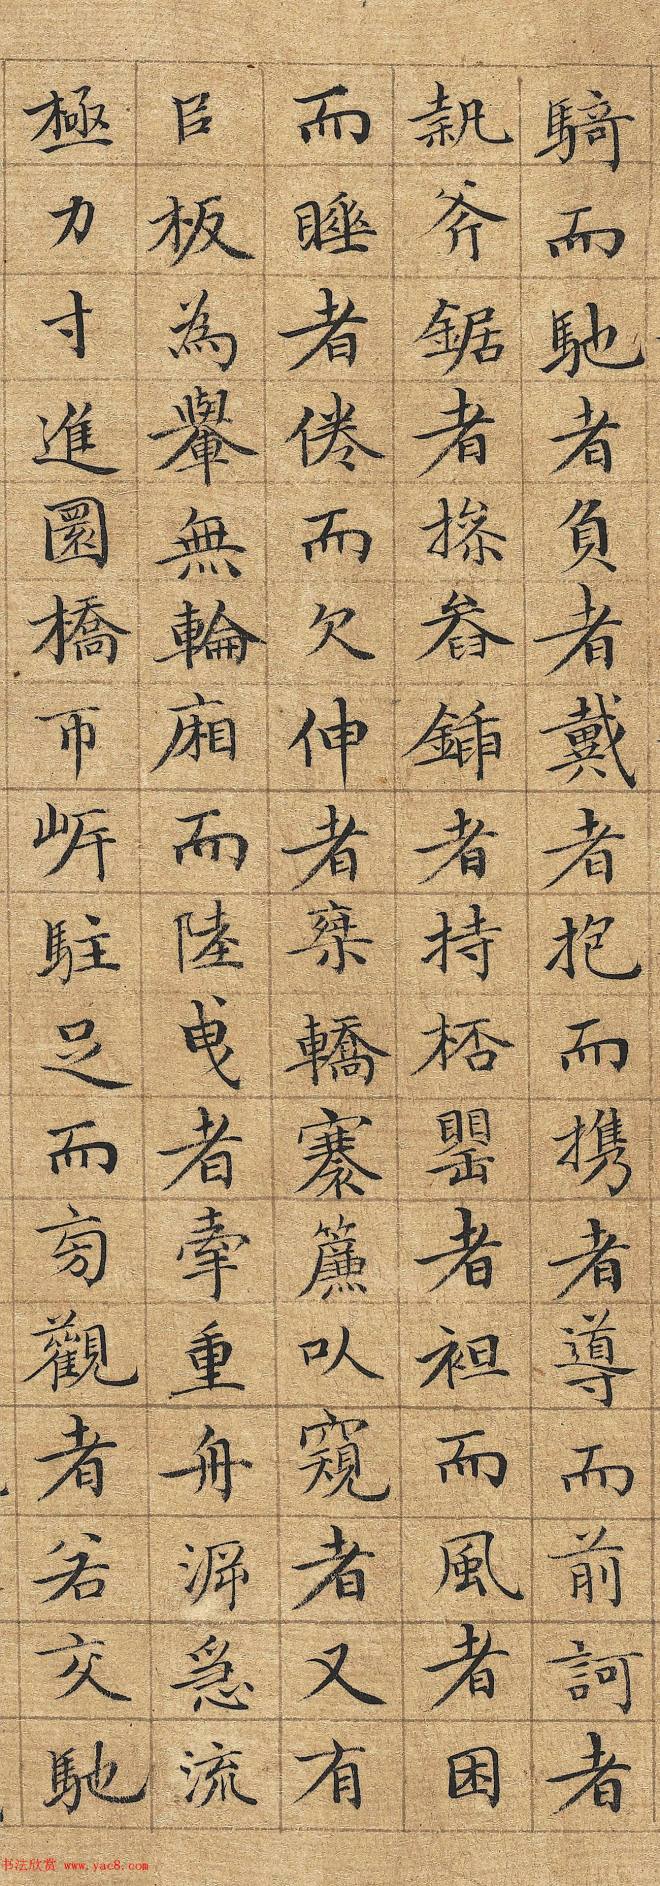 騎而馳者負者戴者抱而携者導而前訶者
執斧鋸者操畚鍤者持桮罌者袒而風者困
而睡者倦而欠伸者乘轎褰簾以窺者又有
以板為轝無輪廂而陸曳者牽重舟泝急流
極力寸進圜橋帀岸駐足而旁觀者若交馳
书法欣赏 www.yac8.com